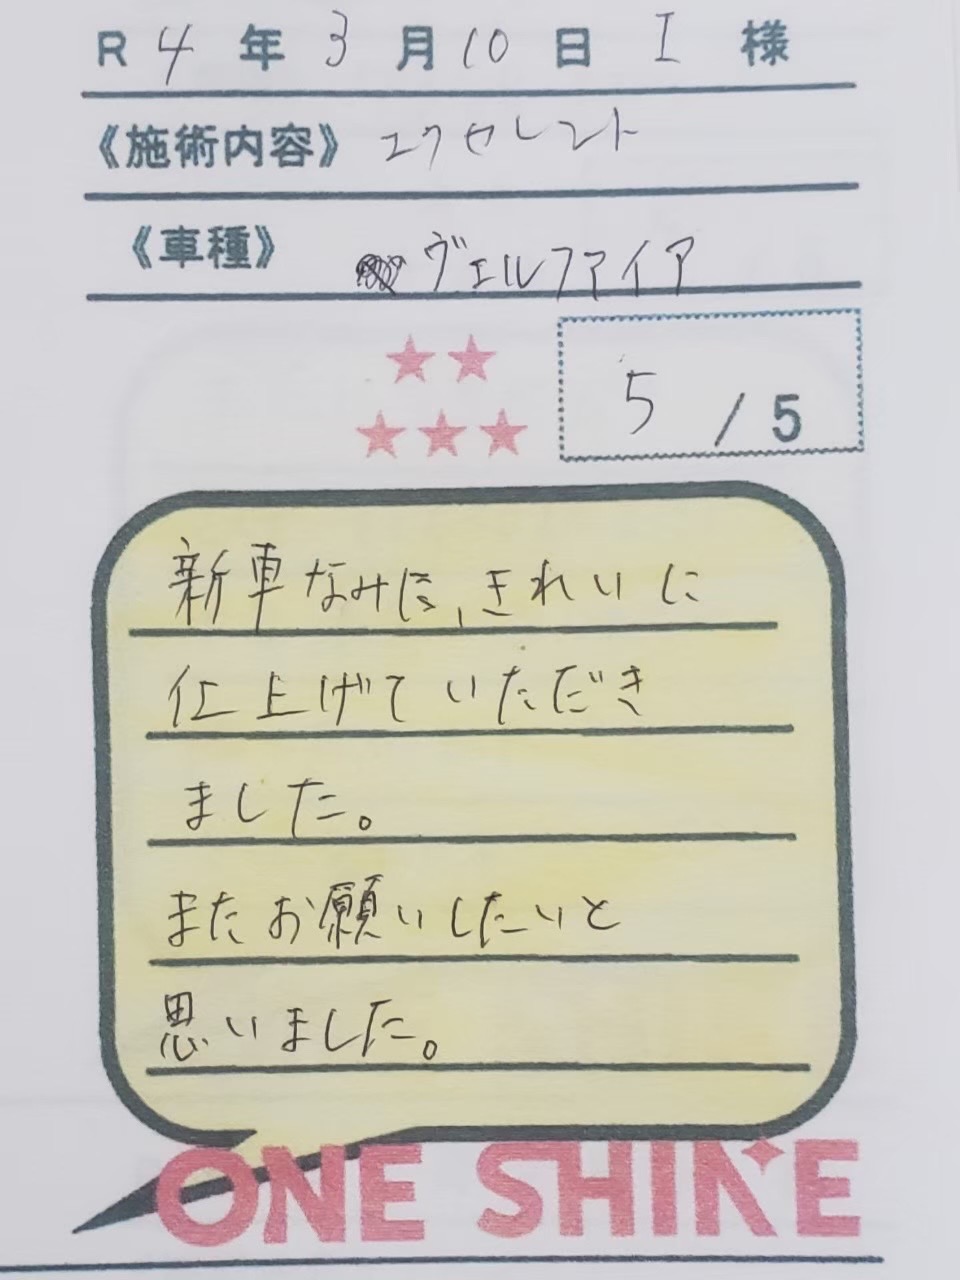 R 4 年 3 月 10 日 I 様
《施術内容》 エクセレント
《車種》 ヴェルファイア
5 / 5
新車なみに、きれいに
仕上げていただき
ました。
またお願いしたいと
思いました。
ONE SHINE